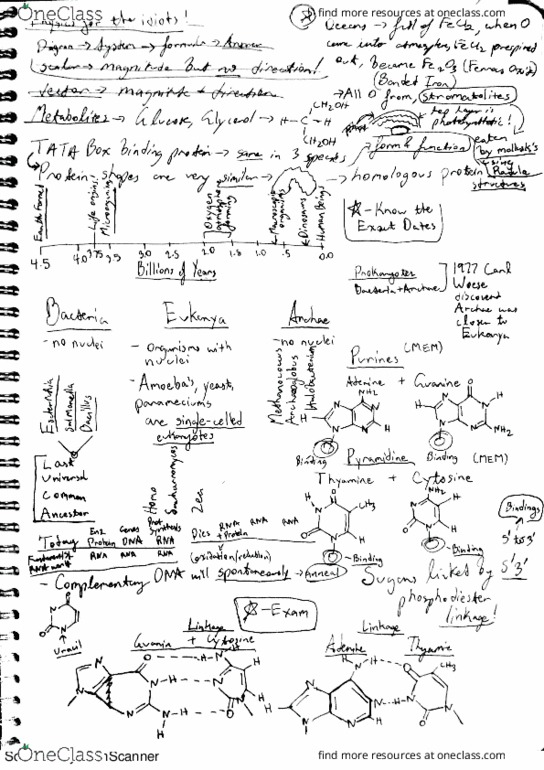 OneClass
find more resources at oneclass.com
Physics for the idiots!
Diagram → System → formula → Answer
Scalar → magnitude But no direction!
Vector → magnitude + direction
Metabolites → Glucose, Glycerol → H-C-H
CH2OH
CH2OH
TATA Box binding protein → same in 3 species
Protein shapes are very similar → → homologous protein
→ full of FeCl2, when O
came into FeCl2
out, became Fe2O3
(Banded Iron)
→ All O from, Stromatolites
top layer is photosynthetic!
form & function
eaten by mollusk's using Radula structures
Earth Formed
Life origins
Microorganisms
Oxygen atmosphere forming
Macroscopic organisms
Dinosaurs
Human Beings
4.5 4.0 3.75 3.5 3.0 2.5 2.0 1.5 1.0 .5 0.0
Billions of Years
☆-Know the Exact Dates
Prokaryotes
Bacteria + Archae
1977 Carl Woese discovered Archae was closer to Eukarya
Bacteria
- no nuclei
Eukarya
- Organisms with nuclei
- Amoeba's, yeast, parameciums
are single-celled eukaryotes
Archae
- no nuclei
Methanococcus
Archaeoglobus
Halobacterium
Escherichia
Salmonella
Bacillus
Last
Universal
Common
Ancestor
Homo
Saccharomyces
Zea
Purines (MEM)
Adenine + Guanine
NH2
NH2
Binding
Binding
Pyramidine (MEM)
Thyamine + Cytosine
CH3
NH2
Binding
Binding
Bindings
5' to 3'
Today
Protein DNA RNA
RNA RNA RNA
RNA RNA RNA
+ Protein
(oxidation/reduction)
- Complementary DNA will spontaneously → Anneal
Sugars linked by 5'3'
phosphodiester linkage!
Uracil
☆-Exam
Linkage
Guania + Cytosine
Linkage
Adenine Thyamine
CH3
OneClass
Scanner
find more resources at oneclass.com